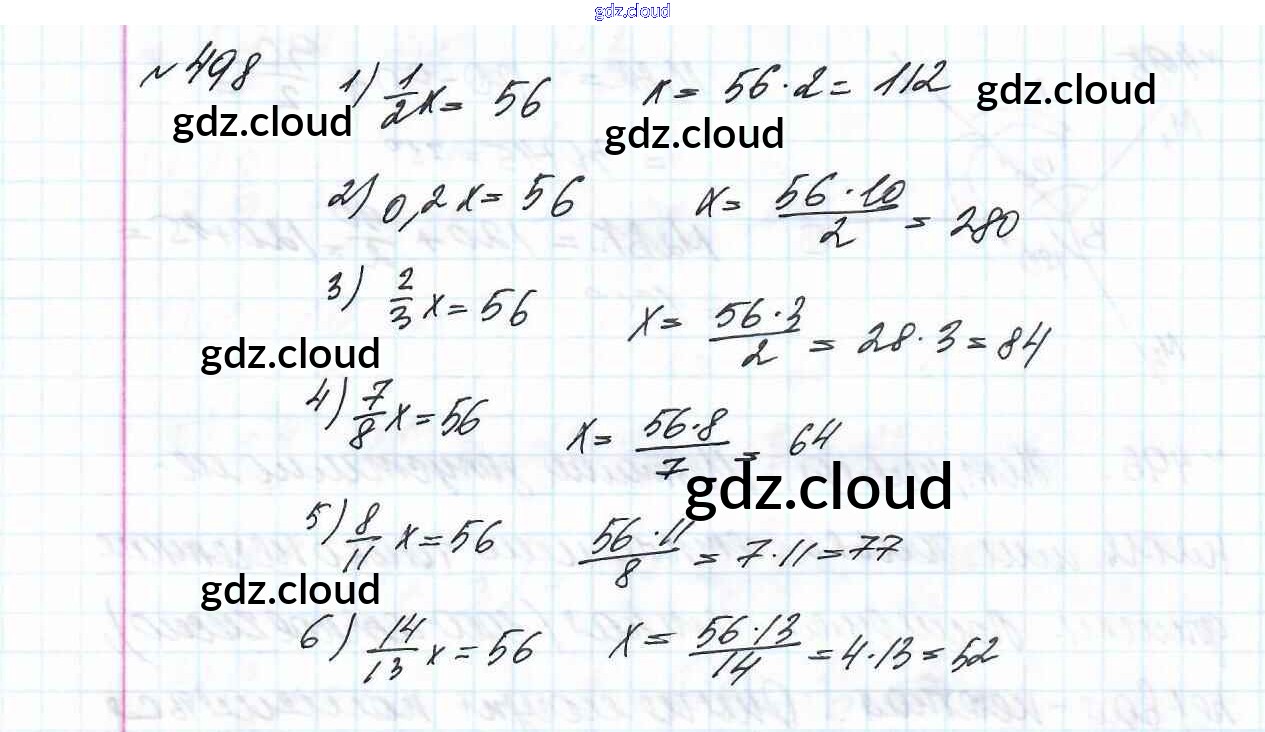 gdz.cloud
№498 1) 1/2 x = 56 x = 56·2 = 112 gdz.cloud
gdz.cloud gdz.cloud
2) 0,2 x = 56 x = 56·10/2 = 280
3) 2/3 x = 56 x = 56·3/2 = 28·3 = 84
gdz.cloud
4) 7/8 x = 56 x = 56·8/7 = 64
gdz.cloud
5) 8/11 x = 56 56·11/8 = 7·11 = 77
gdz.cloud
6) 14/13 x = 56 x = 56·13/14 = 4·13 = 52